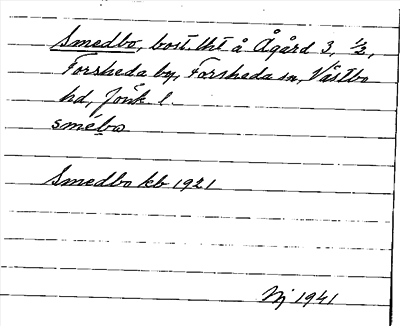 Smedbo, bost. lht å Ågård 3, 1/2,
Forsheda by, Forsheda sn, Västbo
hd, Jönk l.
smēbo
Smedbo kb 1921
Nj 1941